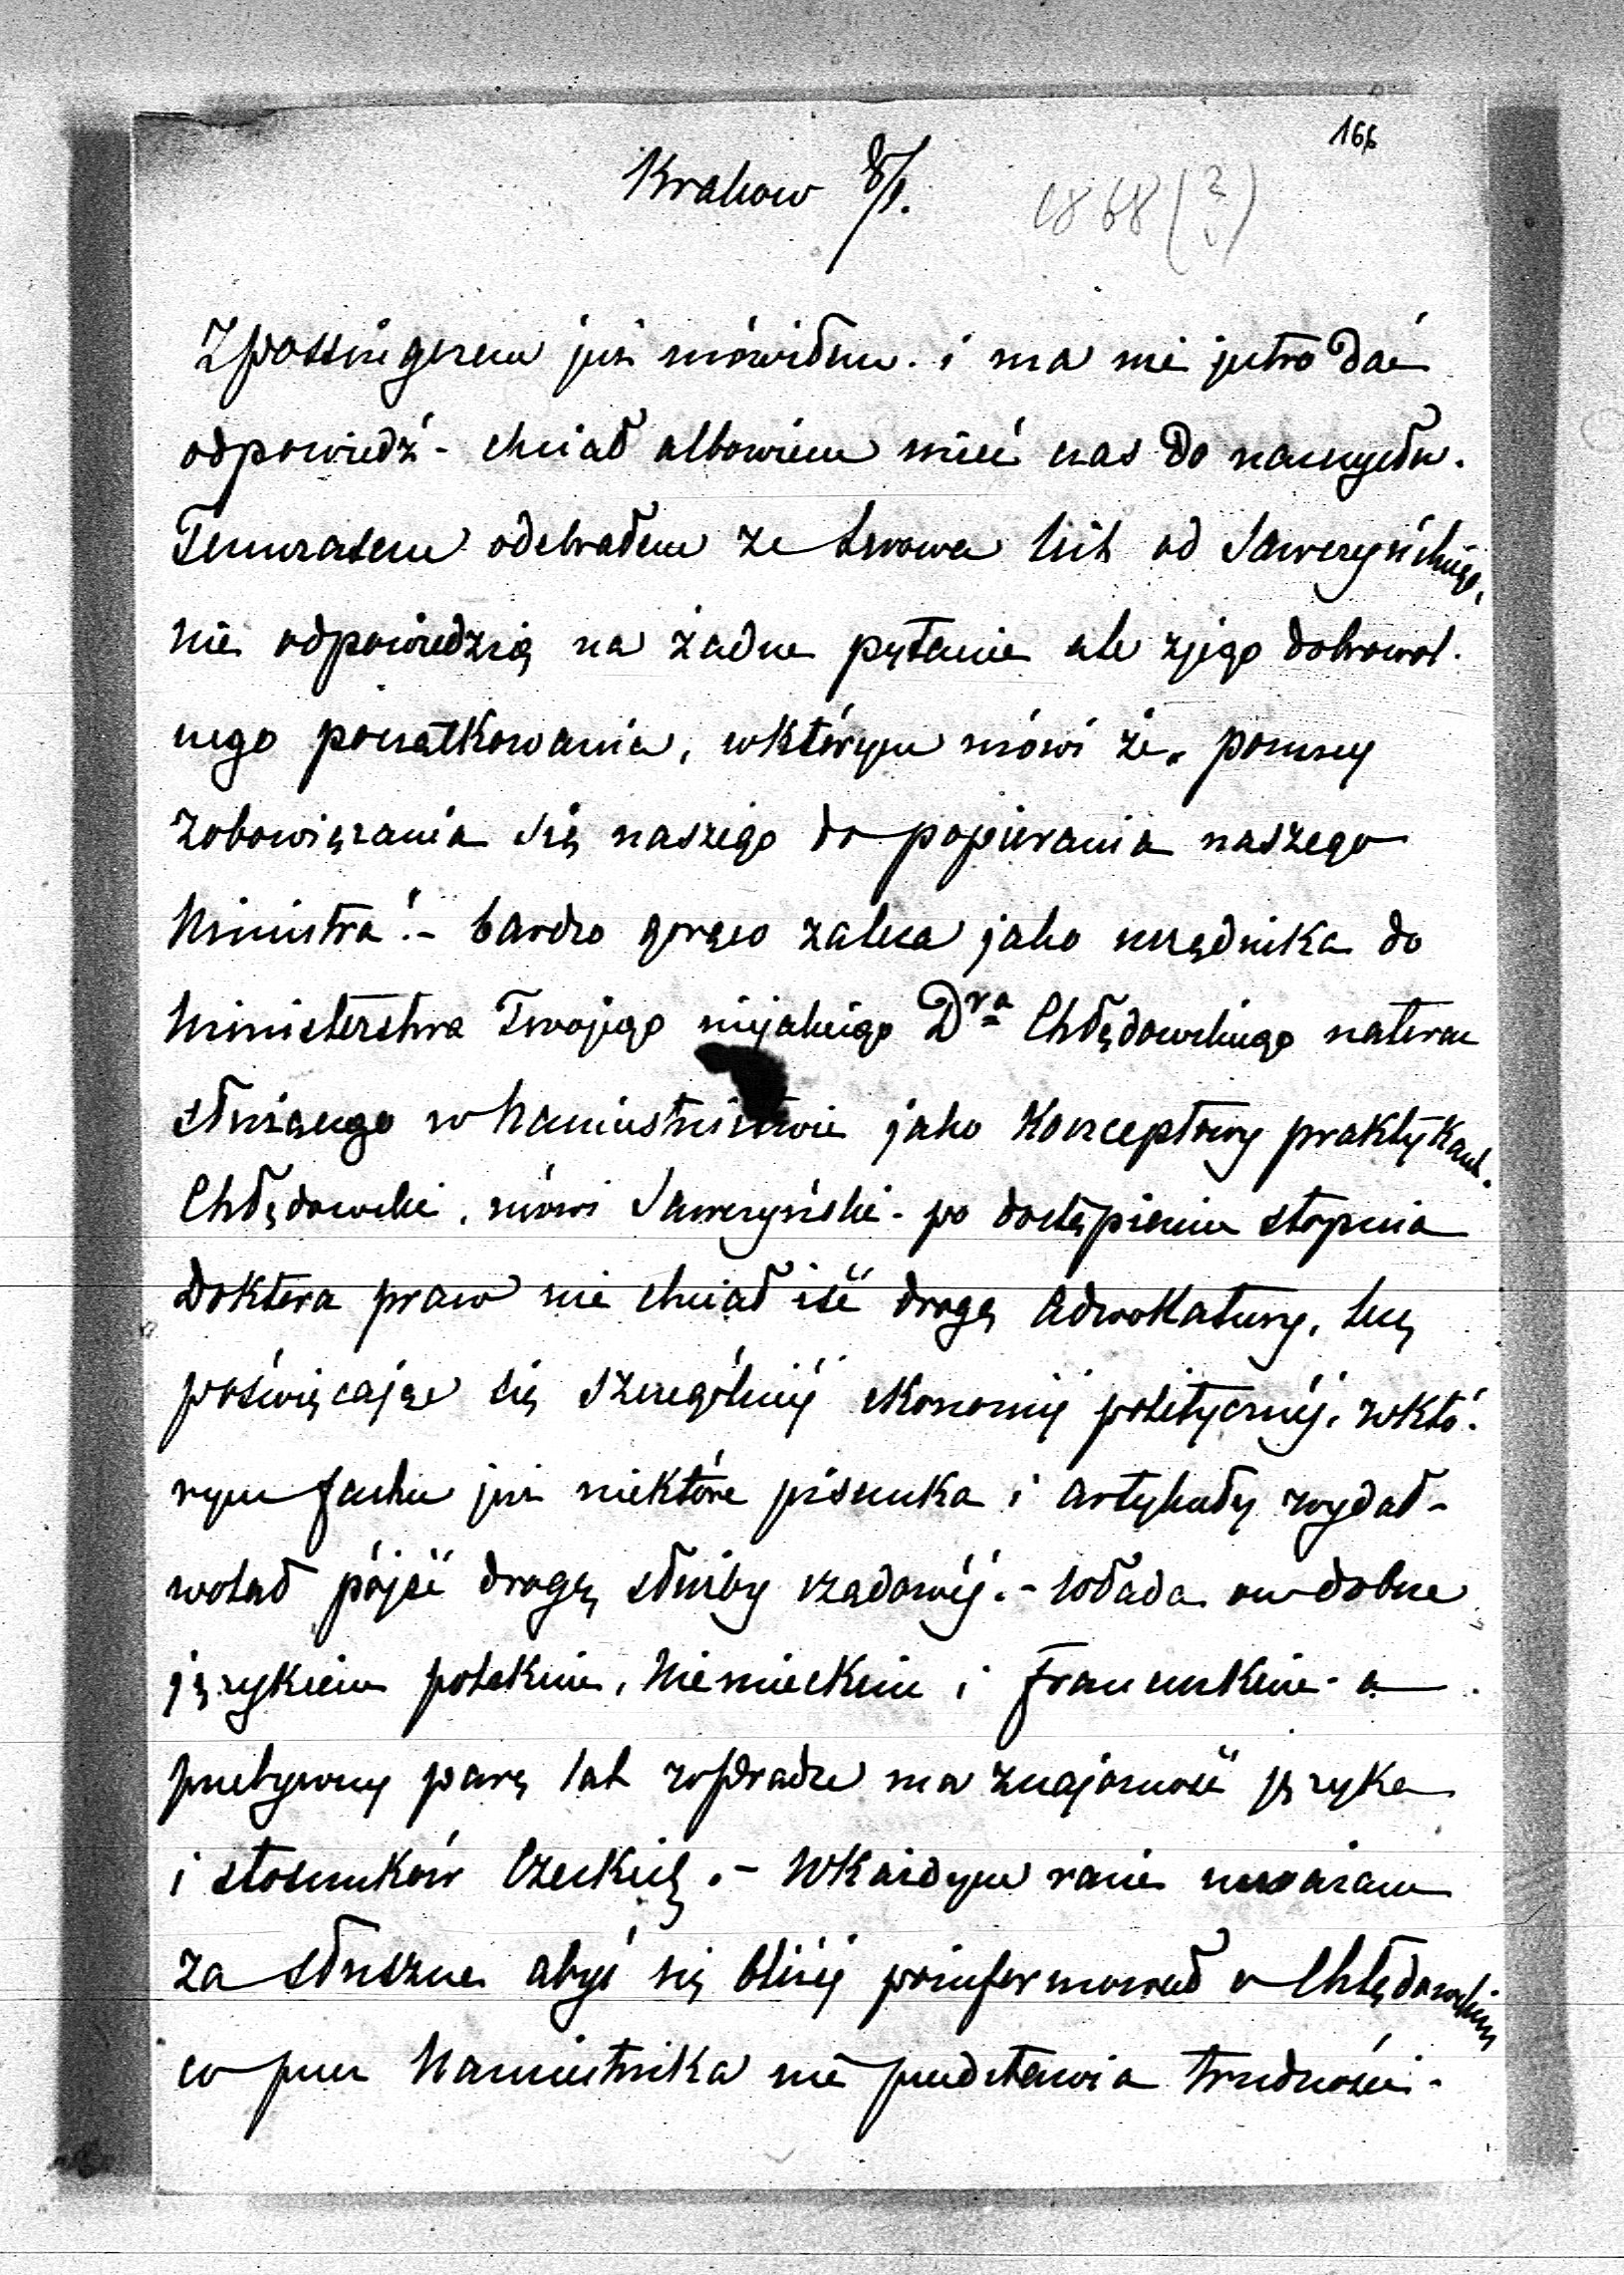 166
Krakow 8/1. 1868 (?)
Z Possingerem już mówiłem. i ma mi jutro dać
odpowiedź - chciał albowiem mieć czas do namysłu.
Tymczasem odebrałem ze Lwowa list od Sawczyńskiego,
nie odpowiedzią na żadne pytanie ale z jego dobrowol-
nego początkowania, w którym mówi że „pomny
zobowiązania się naszego do popierania naszego
Ministra" - bardzo gorąco zaleca jako urzędnika do
Ministerstwa Twojego niejakiego Dra Chłędowskiego na teraz
służącego w Namiestnictwie jako Konceptowy praktykant.
Chłędowski, mówi Sawczyński - po dostąpieniu stopnia
Doktora praw nie chciał iść drogą adwokatury, lecz
poświęcając się szczególniej ekonomij politycznéj, w któ-
rym fachu już niektóre pisemka i artykuły wydał -
wolał pójść drogą służby rządowéj. - Włada on dobrze
językiem polskim, Niemieckim i francuskim - a
przebywszy parę lat w Pradze ma znajomość języka
i stosunków Czeskich. - W każdym razie uważam
za słuszne abyś się bliżéj poinformował o Chłędowskim
co przez Namiestnika nie przedstawia trudności -